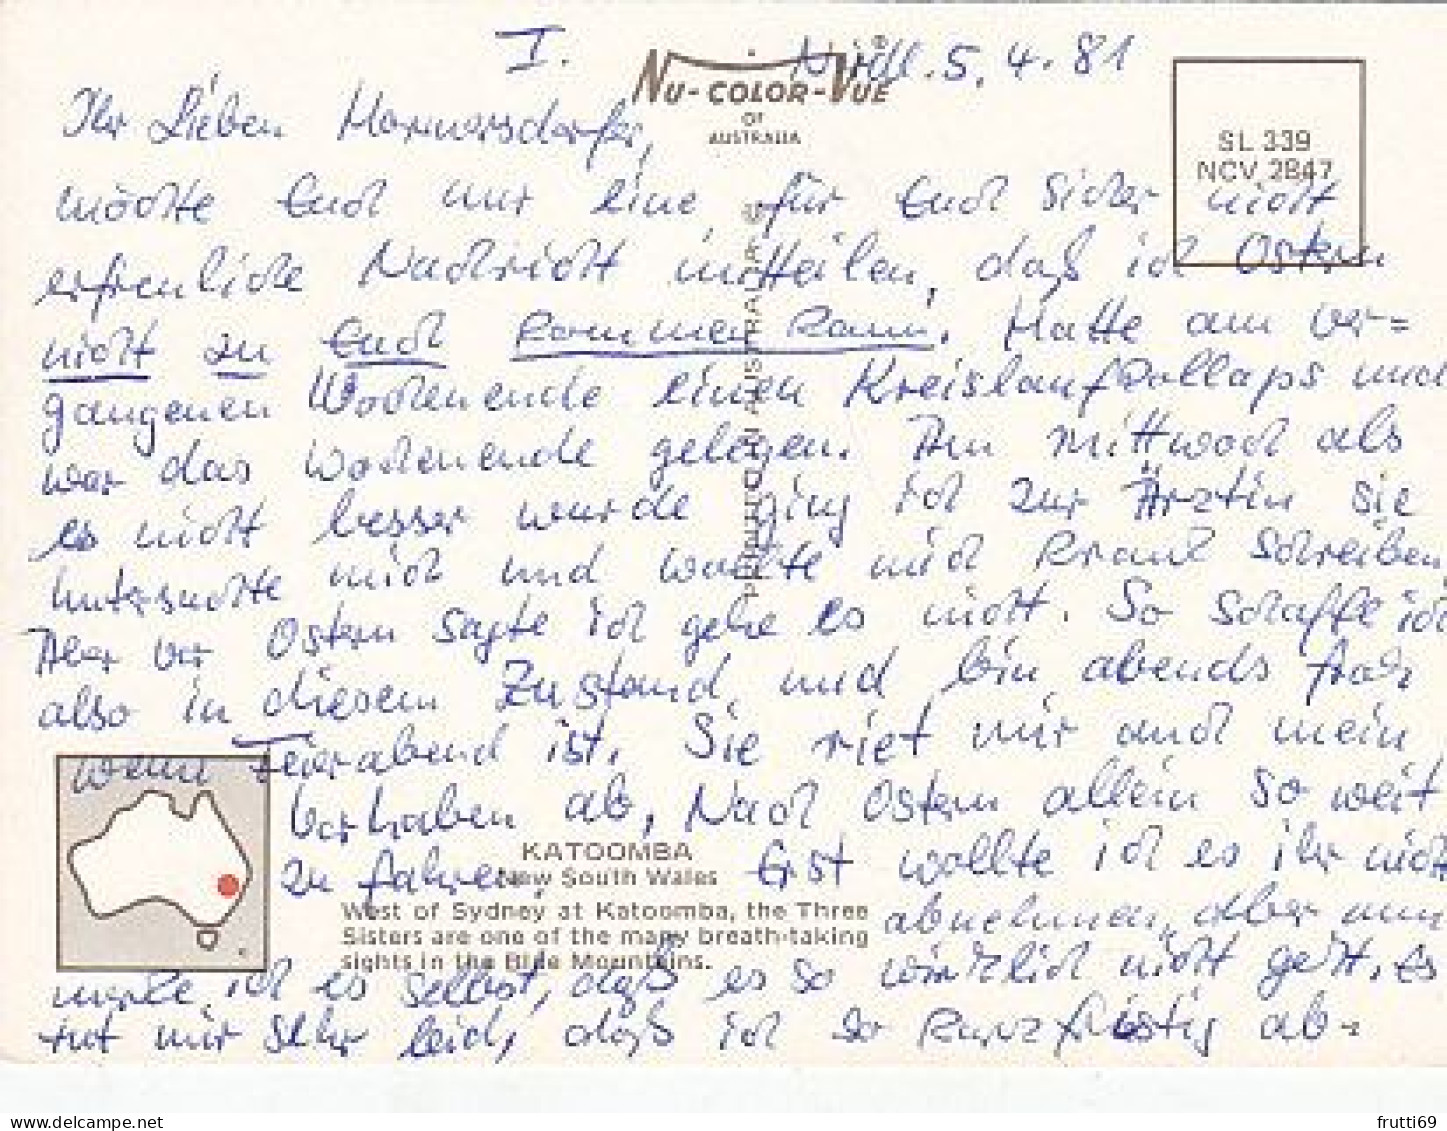 I.
5.4.81
NU-COLOR-VUE®
OF
AUSTRALIA
SL 339
NCV 2847
Ihr Lieben
möchte Euch nur eine, für Euch sicher nicht
erfreuliche Nachricht mitteilen, daß ich Ostern
nicht zu Euch kommen kann. Hatte am ver=
gangenen Wochenende einen Kreislaufkollaps und
war das Wochenende gelegen. Am Mittwoch als
es nicht besser wurde ging ich zur Ärztin sie
untersuchte mich und wollte mich krank schreiben,
Aber vor Ostern sagte ich gehe es nicht. So schaffe ich
also in diesem Zustand und bin abends froh
wenn Feierabend ist. Sie riet mir auch mein
Vorhaben ab, Nach Ostern allein so weit
zu fahren, Erst wollte ich es ihr nicht
KATOOMBA
New South Wales
West of Sydney at Katoomba, the Three
Sisters are one of the many breath-taking
sights in the Blue Mountains.
abnehmen, aber nun
merke ich es selbst, daß es so wirklich nicht geht. Es
tut mir sehr leid, daß ich so kurzfristig ab-
PRINTED IN AUSTRALIA
delcampe.net
frutti69